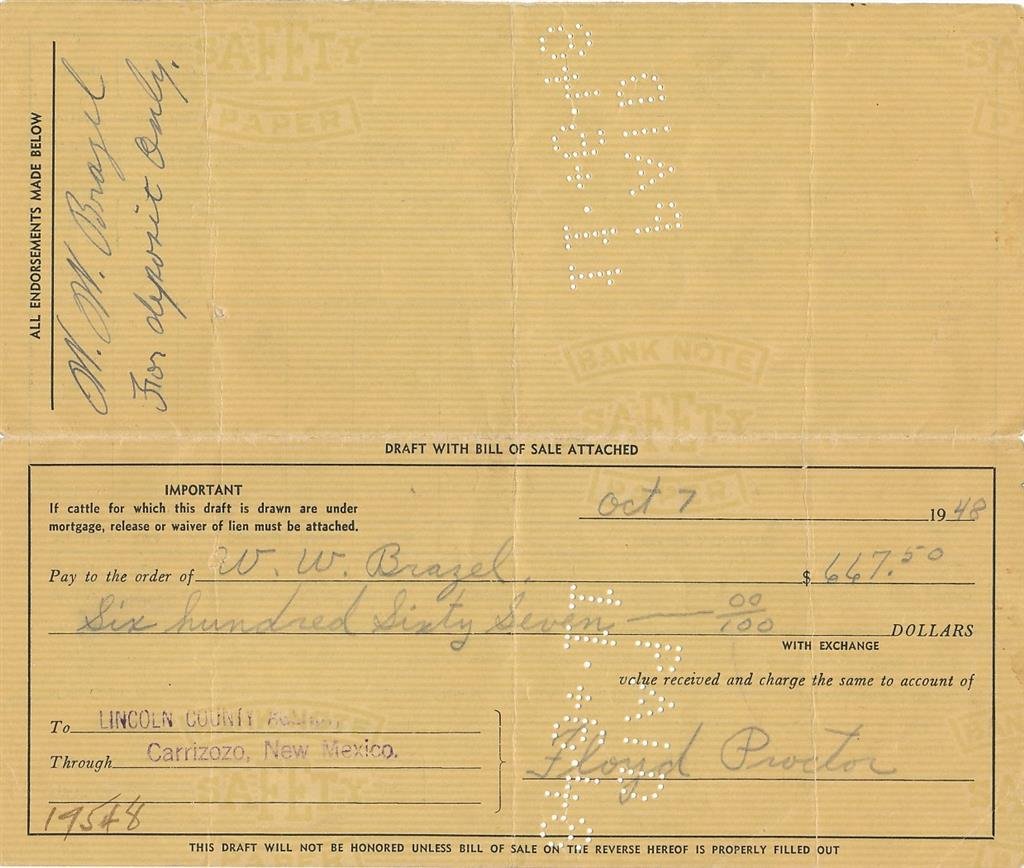 ALL ENDORSEMENTS MADE BELOW
W. W. Brazel
For deposit Only.
SAFETY
PAPER
BANK NOTE
SAFETY
PAPER
DRAFT WITH BILL OF SALE ATTACHED
IMPORTANT
If cattle for which this draft is drawn are under
mortgage, release or waiver of lien must be attached.
Oct 7 1948
Pay to the order of W. W. Brazel. $ 667.50
Six hundred Sixty Seven — 00/100 DOLLARS
WITH EXCHANGE
value received and charge the same to account of
To LINCOLN COUNTY
Through Carrizozo, New Mexico.
Floyd Proctor
SAFETY
19548
THIS DRAFT WILL NOT BE HONORED UNLESS BILL OF SALE ON THE REVERSE HEREOF IS PROPERLY FILLED OUT